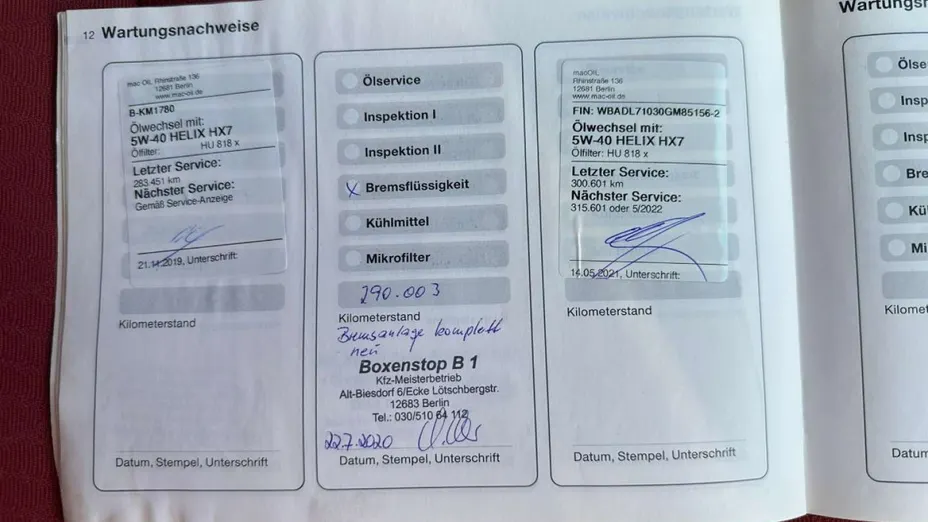 12 Wartungsnachweise
mac OIL Rhinstraße 136
12681 Berlin
www.mac-oil.de
B-KM1780
Ölwechsel mit:
5W-40 HELIX HX7
Ölfilter: HU 818 x
Letzter Service:
283.451 km
Nächster Service:
Gemäß Service-Anzeige
21.11.2019, Unterschrift:
Kilometerstand
Datum, Stempel, Unterschrift
Ölservice
Inspektion I
Inspektion II
x Bremsflüssigkeit
Kühlmittel
Mikrofilter
290.003
Kilometerstand
Bremsanlage komplett
neu
Boxenstop B 1
Kfz-Meisterbetrieb
Alt-Biesdorf 6/Ecke Lötschbergstr.
12683 Berlin
Tel.: 030/510 64 112
22.7.2020
Datum, Stempel, Unterschrift
macOIL
Rhinstraße 136
12681 Berlin
www.mac-oil.de
FIN: WBADL71030GM85156-2
Ölwechsel mit:
5W-40 HELIX HX7
Ölfilter: HU 818 x
Letzter Service:
300.601 km
Nächster Service:
315.601 oder 5/2022
14.05.2021, Unterschrift:
Kilometerstand
Datum, Stempel, Unterschrift
Wartungsn
Ölse
Insp
Insp
Bre
Kü
Mi
Kilomet
Datum